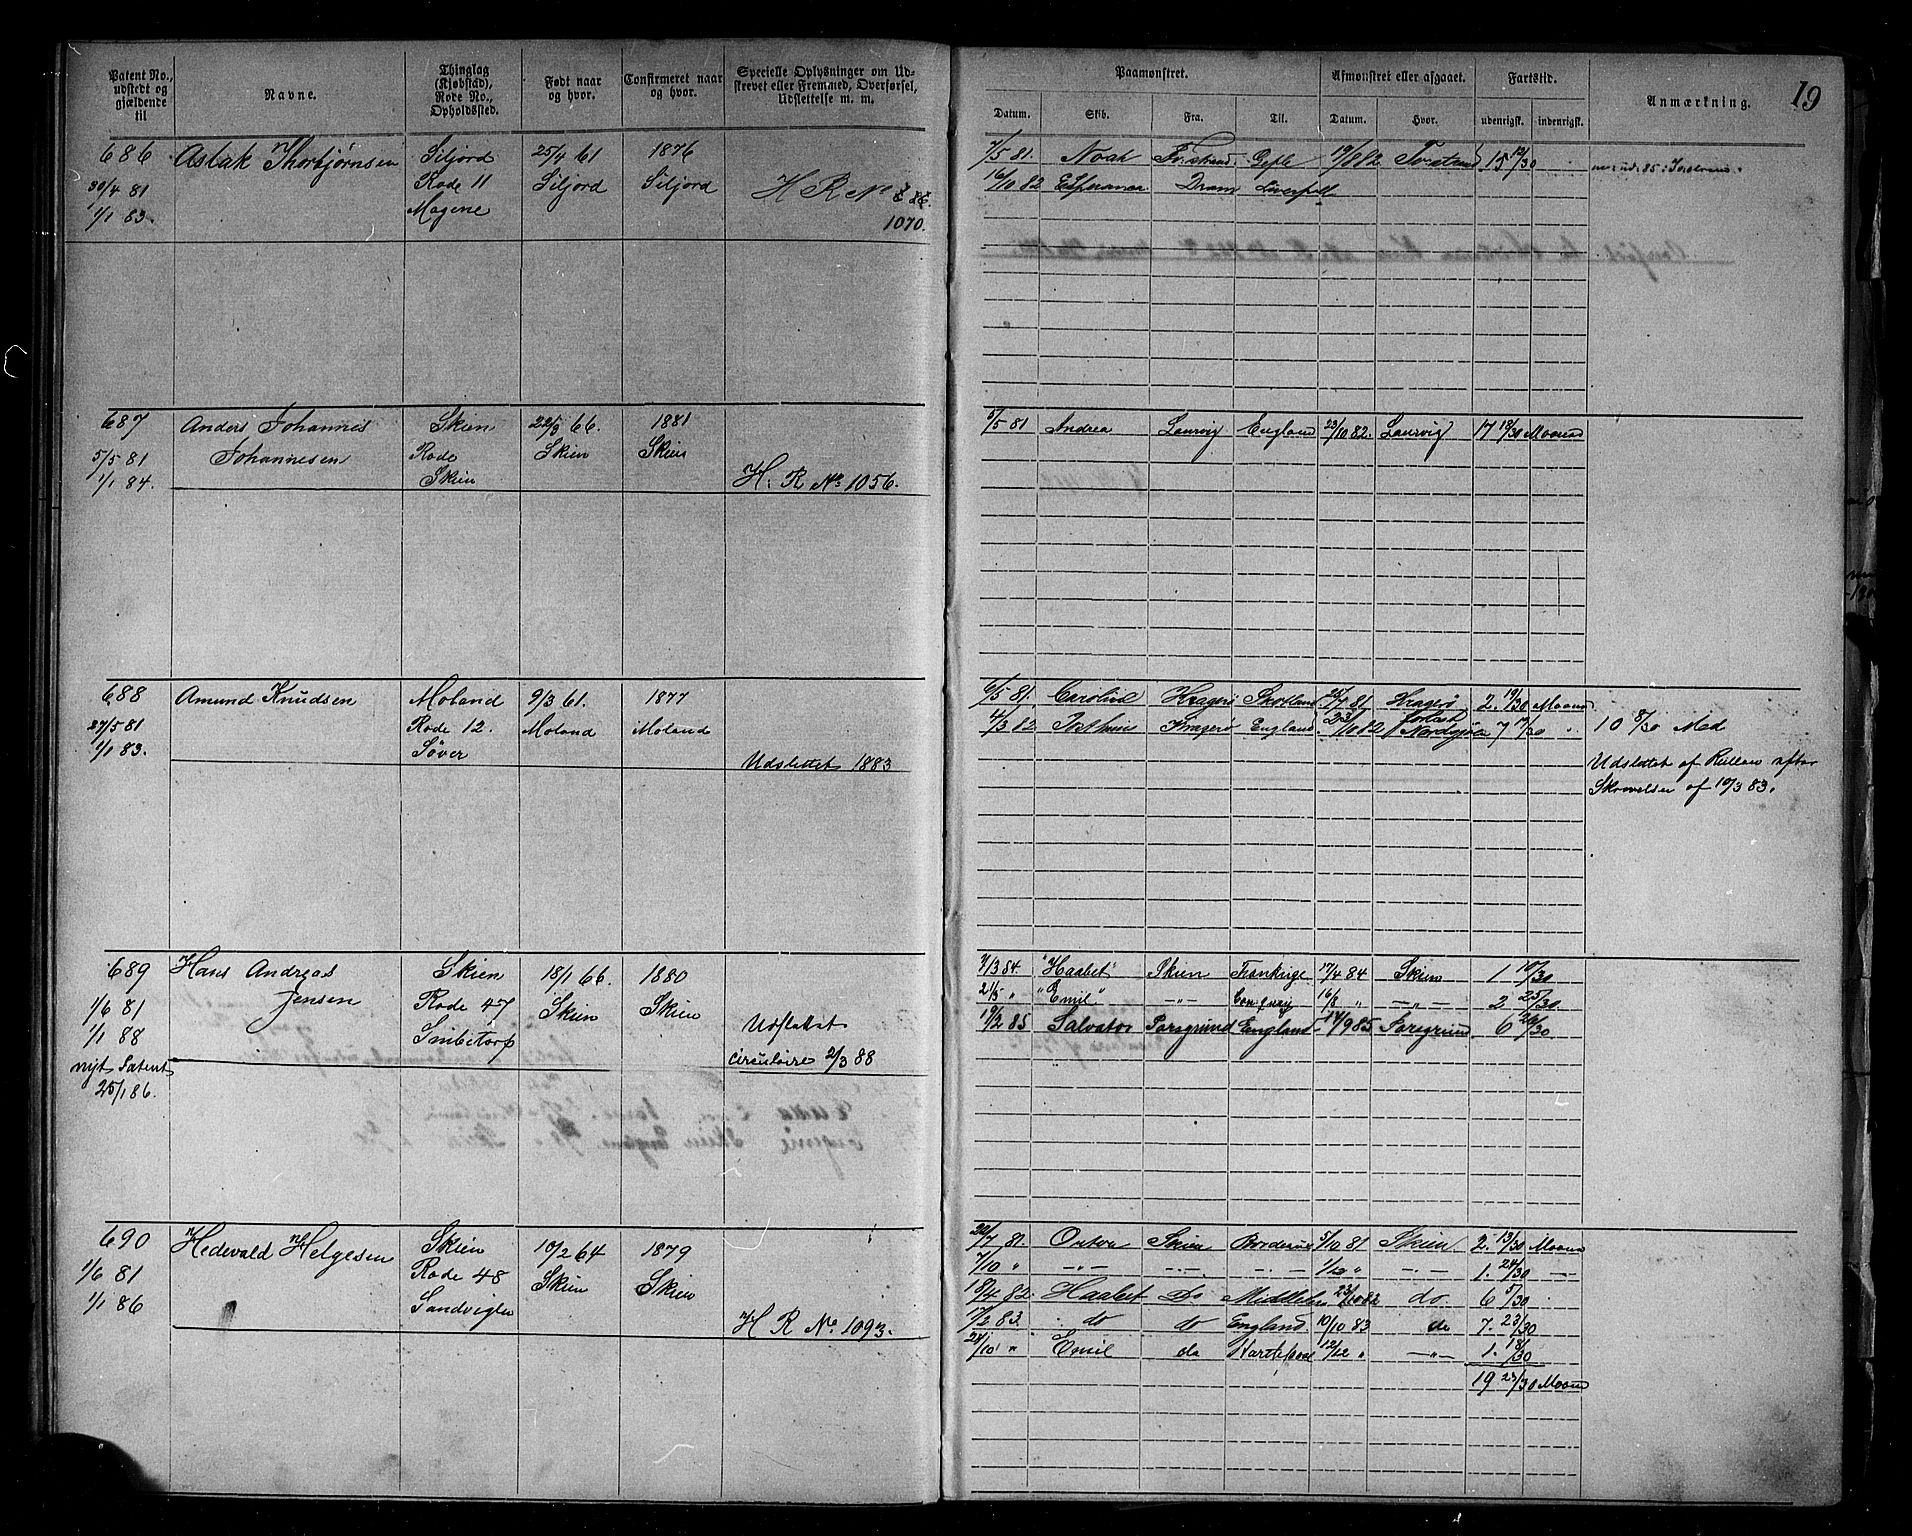 Patent No., udstedt og gjældende til
Navne.
Thinglag (Kjøbstad), Rode No., Opholdssted.
Født naar og hvor.
Confirmeret naar og hvor.
Specielle Oplysninger om Udstrevet eller Fremmed, Overførsel, Udslettelse m. m.
Paamønstret.
Afmønstret eller afgaaet.
Fartstid.
Anmærkning.
19
Datum. Skib. Fra. Til. Datum. Hvor. udenrigsk. indenrigsk.
686 Aslak Thorbjørnsen Siljord 25/4 61 1876
30/4 81 Rode 11 Siljord Siljord H R No
1/1 83. Mogene 1070.
7/5 81. Noah Gefle 19/8 82 15 12/30
16/10 82 Esperance Dram Liverpool
687 Anders Johannes Skien 22/9 66. 1881
5/5 81 Johannesen Rode Skien Skien
1/1 84. Skien H. R No 1056.
5/5 81 Andrea Laurvig England 23/10 82. Laurvig 17 18/30 Maaned
688 Amund Knudsen Moland 9/3 61. 1877
27/5 81 Rode 12. Moland Moland
1/1 83. Udslettet 1883
6/5 81. Caroline Kragerø Skotland 25/7 81 Kragerø 2. 19/30 Maaned
4/3 82 Kragerø England 23/10 82 forlist Nordsjøen 7 17/30 "
10 8/30 Med
Udslettet af Rullen efter
Skrivelse af 10/3 83.
689 Hans Andreas Skien 18/1 66. 1880
1/6 81 Jensen Rode 47 Skien Skien
1/1 88 Udslettet
nyt Patent circulaire 2/3 88
25/1 86.
7/3 84. "Haabet" Skien Frankrige 17/4 84 Skien 1 10/30
21/5 " "Emil" —"— 16/8 " —"— 2 25/30
19/2 85 Salvator Porsgrund England 17/9 85 Porsgrund 6 26/30
690 Hedevald Helgesen Skien 10/2 64 1879
1/6 81 Rode 48 Skien Skien
1/1 86 H R No. 1093.
22/7 81. Skien Bordeaux 5/10 81 Skien 2. 13/30 Maaned
7/10 " —"— —"— —"— 1/12 " —"— 1. 24/30 —"—
18/4 82. Haabet Do 23/10 82 do. 6 5/30
17/2 83. do do England 10/10 83 do 7. 23/30
24/10 " Emil do Hartlepool 12/12 " —"— 1. 18/30
19 23/30 Maaned